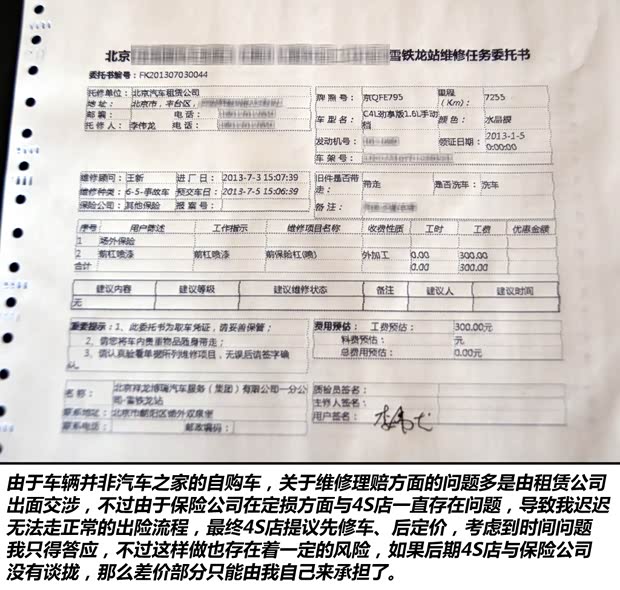 北京 雪铁龙站维修任务委托书
委托书编号：FK201307030044
托修单位：北京汽车租赁公司
地 址：北京市，丰台区，
邮 编： 电 话：
托修人：李伟龙 电 话：
牌照号：京QFE795 里程(Km)：7255
车型名：C4L劲享版1.6L手动档 颜色：水晶银
发动机号： 领证日期：2013-1-5 0:00:00
车架号：
维修顾问：王新 进厂日：2013-7-3 15:07:39
维修种类：6-5-事故车 预交车日：2013-7-5 15:06:39
保险公司：其他保险 报案号：
旧件是否带走：带走 是否洗车：洗车
备注：
序号 用户陈述 工作指示 维修项目名称 收费性质 工时 工费 优惠金额
1 场外保险
2 前杠喷漆 前杠喷漆 前保险杠(喷) 外加工 0.00 300.00
合计 0.00 300.00
建议内容 建议等级 建议维修状态 备注 建议人 建议时间
无
重要提示：1、此委托书为取车凭证，请妥善保管；
2、请您将车内贵重物品随身带走；
3、请认真验看单据所列维修项目，无误后请签字确认。
费用预估： 工费预估： 300.00元
料费预估： 元
总费用预估： 0.00元
名称：北京祥龙博瑞汽车服务（集团）有限公司一分公司-雪铁龙站
联系地址：北京市朝阳区
联系电话： 邮政编码：
质检员签名：
主修人签名：
用户签名：李伟龙
由于车辆并非汽车之家的自购车，关于维修理赔方面的问题多是由租赁公司
出面交涉，不过由于保险公司在定损方面与4S店一直存在问题，导致我迟迟
无法走正常的出险流程，最终4S店提议先修车、后定价，考虑到时间问题
我只得答应，不过这样做也存在着一定的风险，如果后期4S店与保险公司
没有谈拢，那么差价部分只能由我自己来承担了。